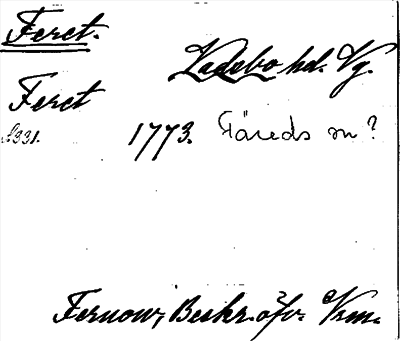 Feret.
Kadebo hd. Vg.
Feret
S331. 1773. Färeds sn?
Fernow, Beskr. öfv. Vrm.